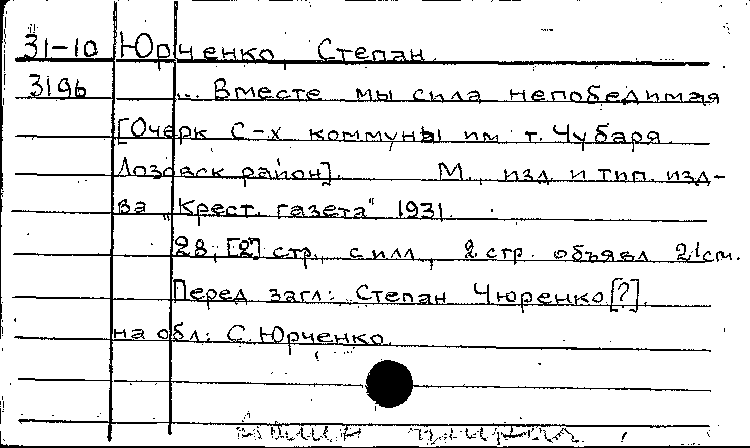 31-10 Юрченко, Степан.
3196 ... Вместе мы сила непобедимая
[Очерк С-х коммуны им т. Чубаря
Лозовск район]. М., изд и тип. изд-
ва „Крест. газета" 1931.
28, [2] стр., с илл., 2 стр. объявл 21см.
Перед загл: Степан Чюренко [?].
на обл: С. Юрченко.